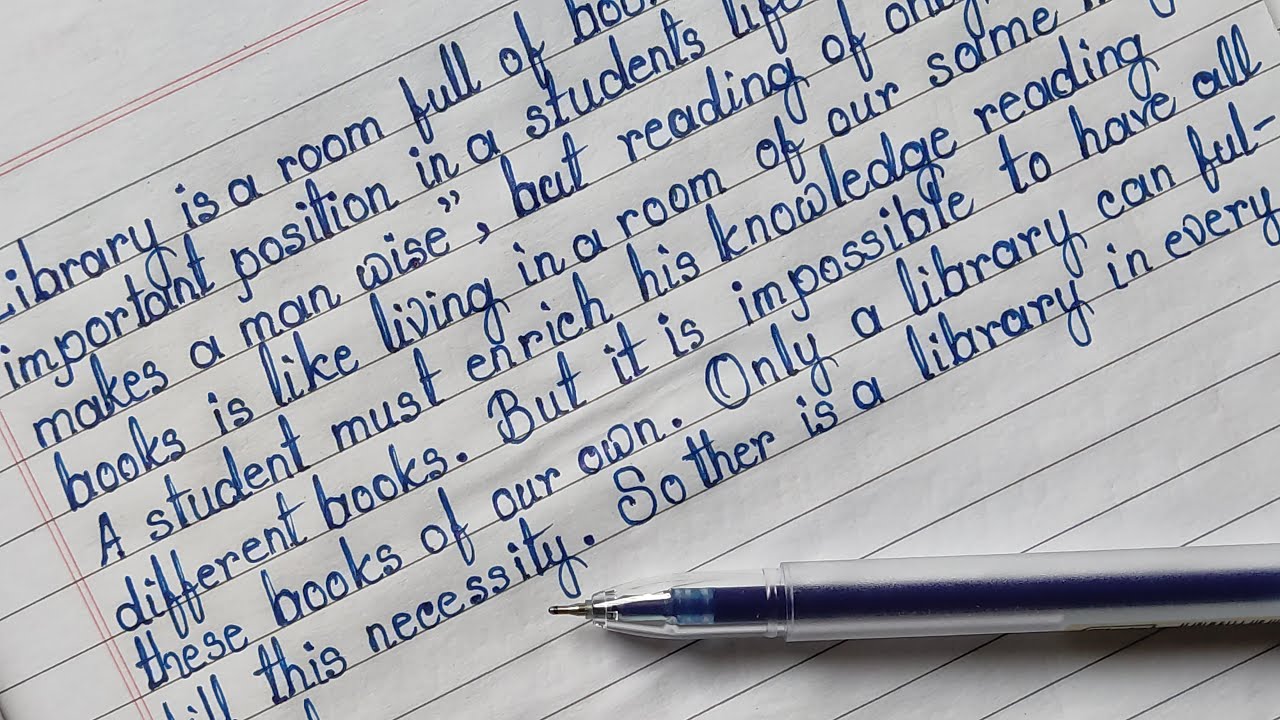 Library is a room full of
important position in a students life
makes a man wise”, but reading of
books is like living in a room of our some
A student must enrich his knowledge reading
different books. But it is impossible to have all
these books of our own. Only a library can ful-
fill this necessity. So ther is a library in every